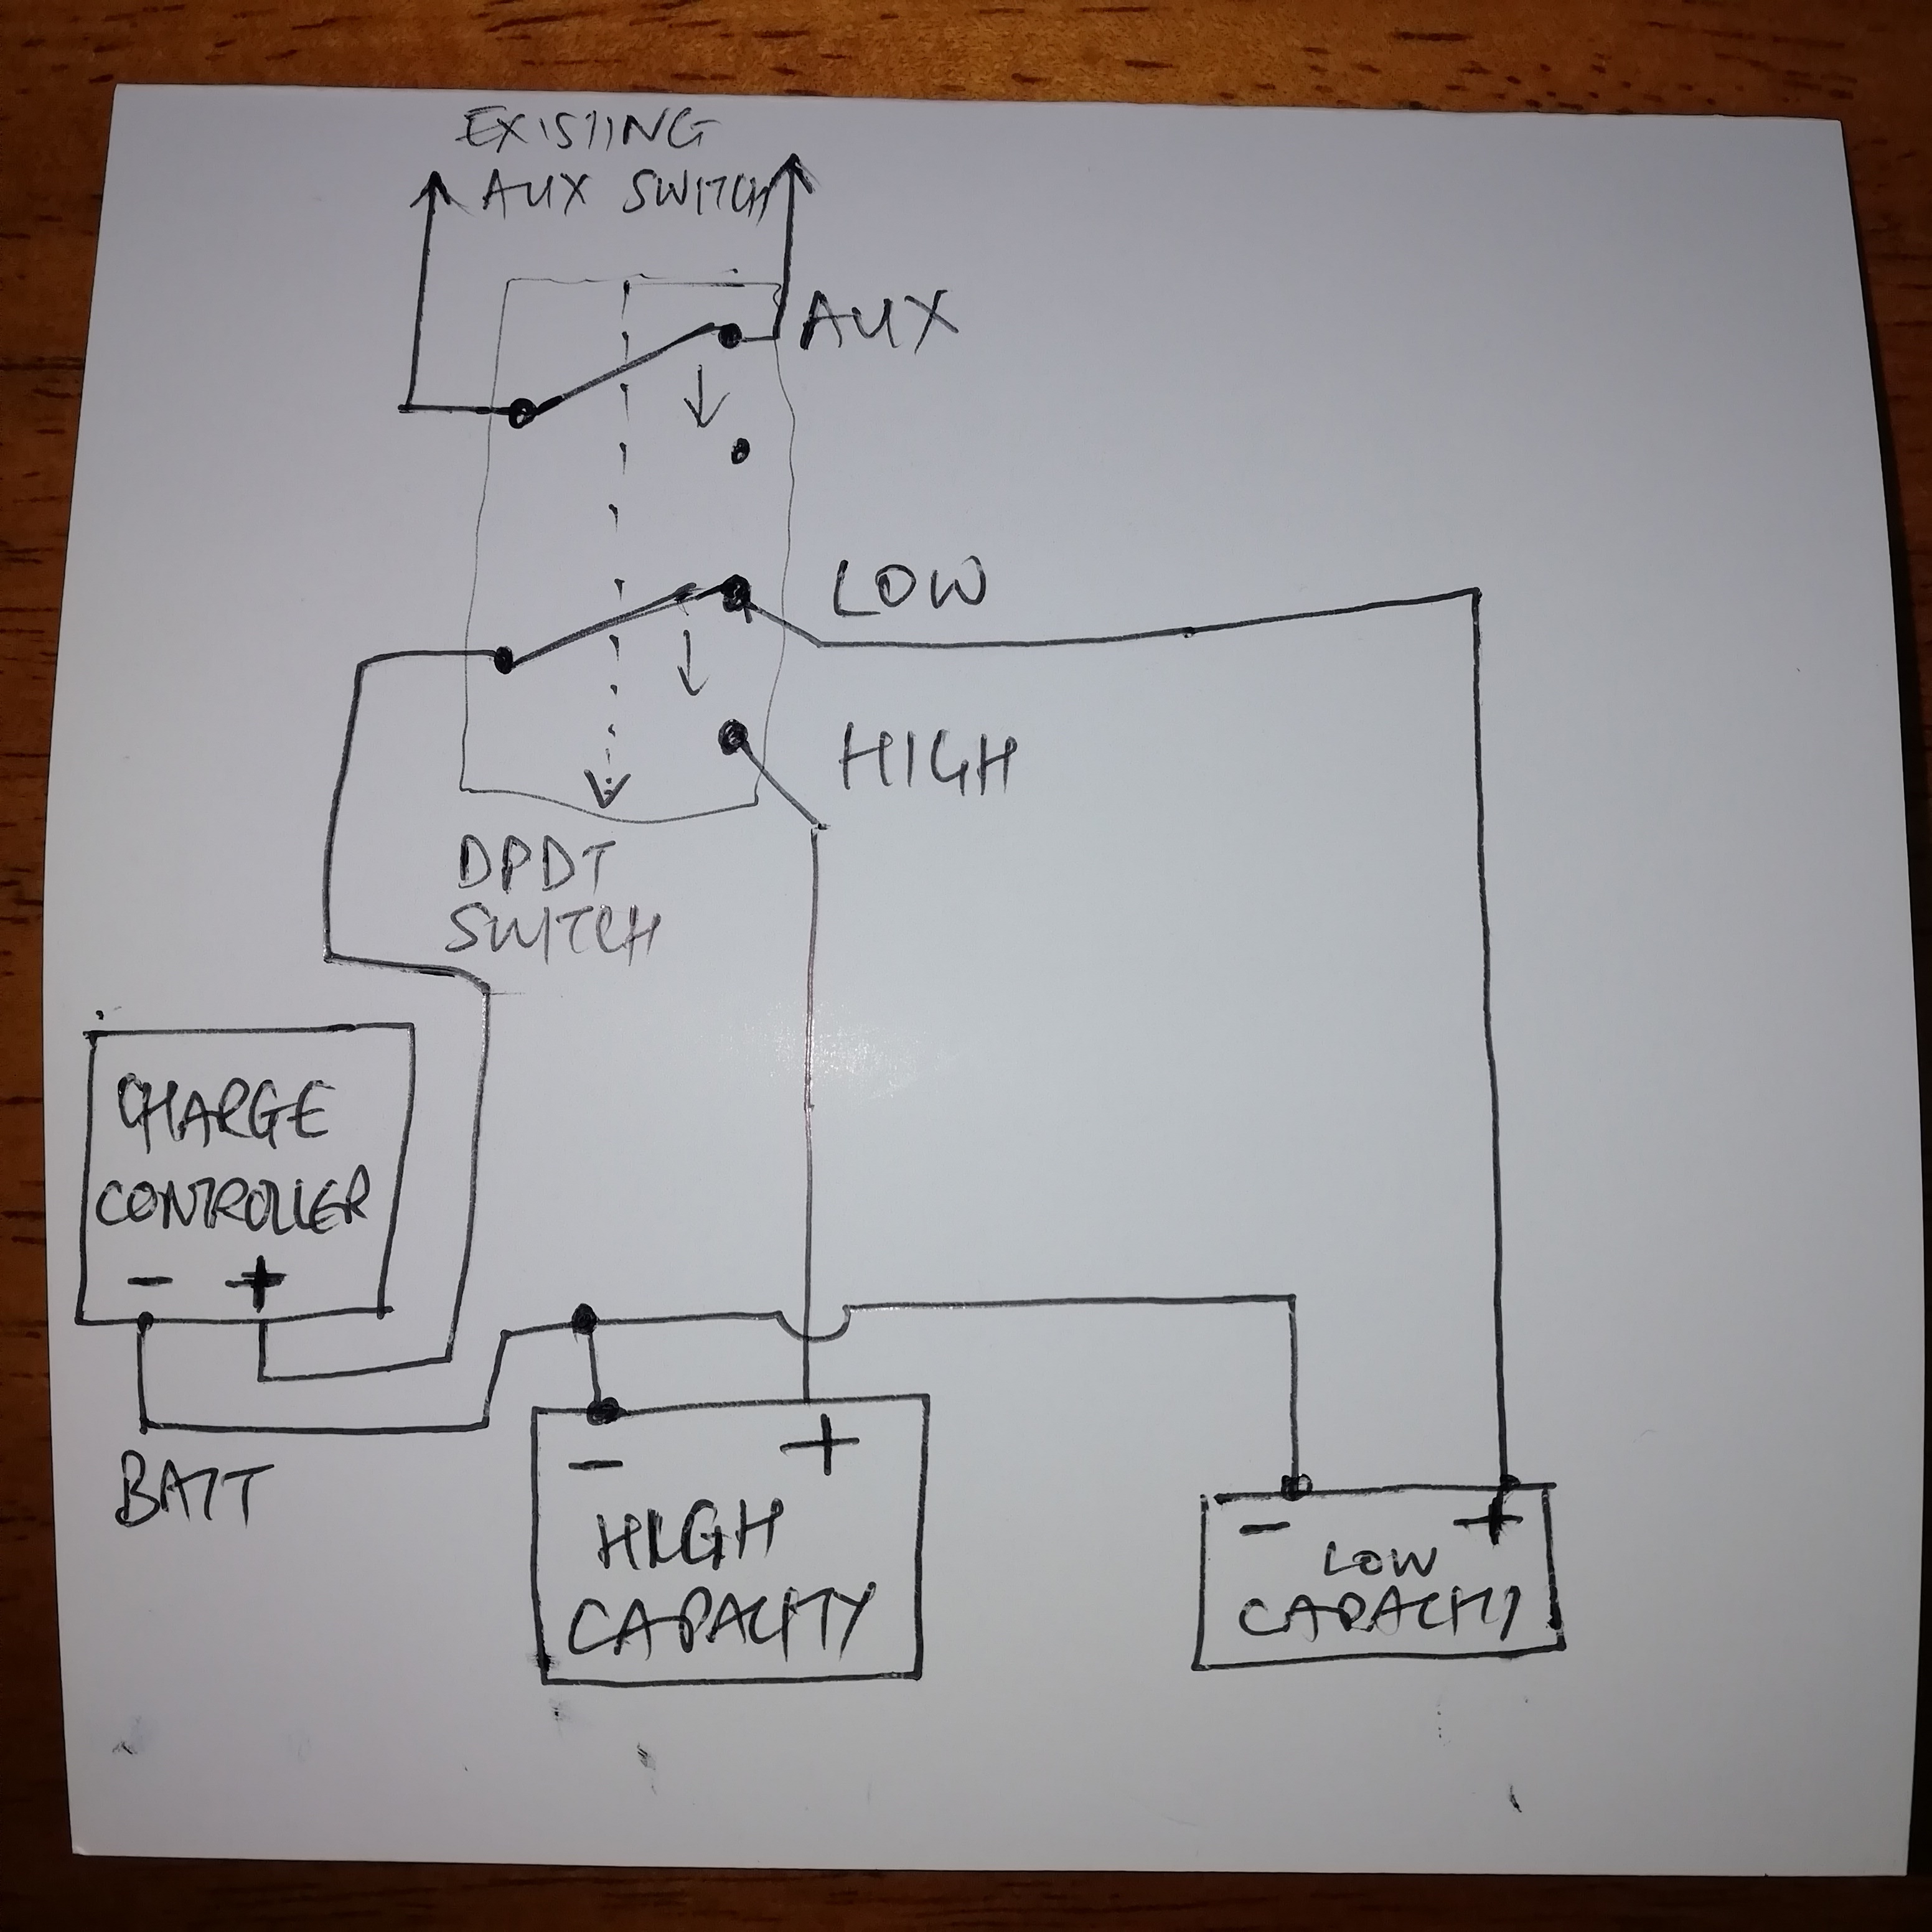 EXISTING
AUX SWITCH
AUX
LOW
HIGH
DPDT
SWITCH
CHARGE
CONTROLLER
- +
BATT
- +
HIGH
CAPACITY
- +
LOW
CAPACITY